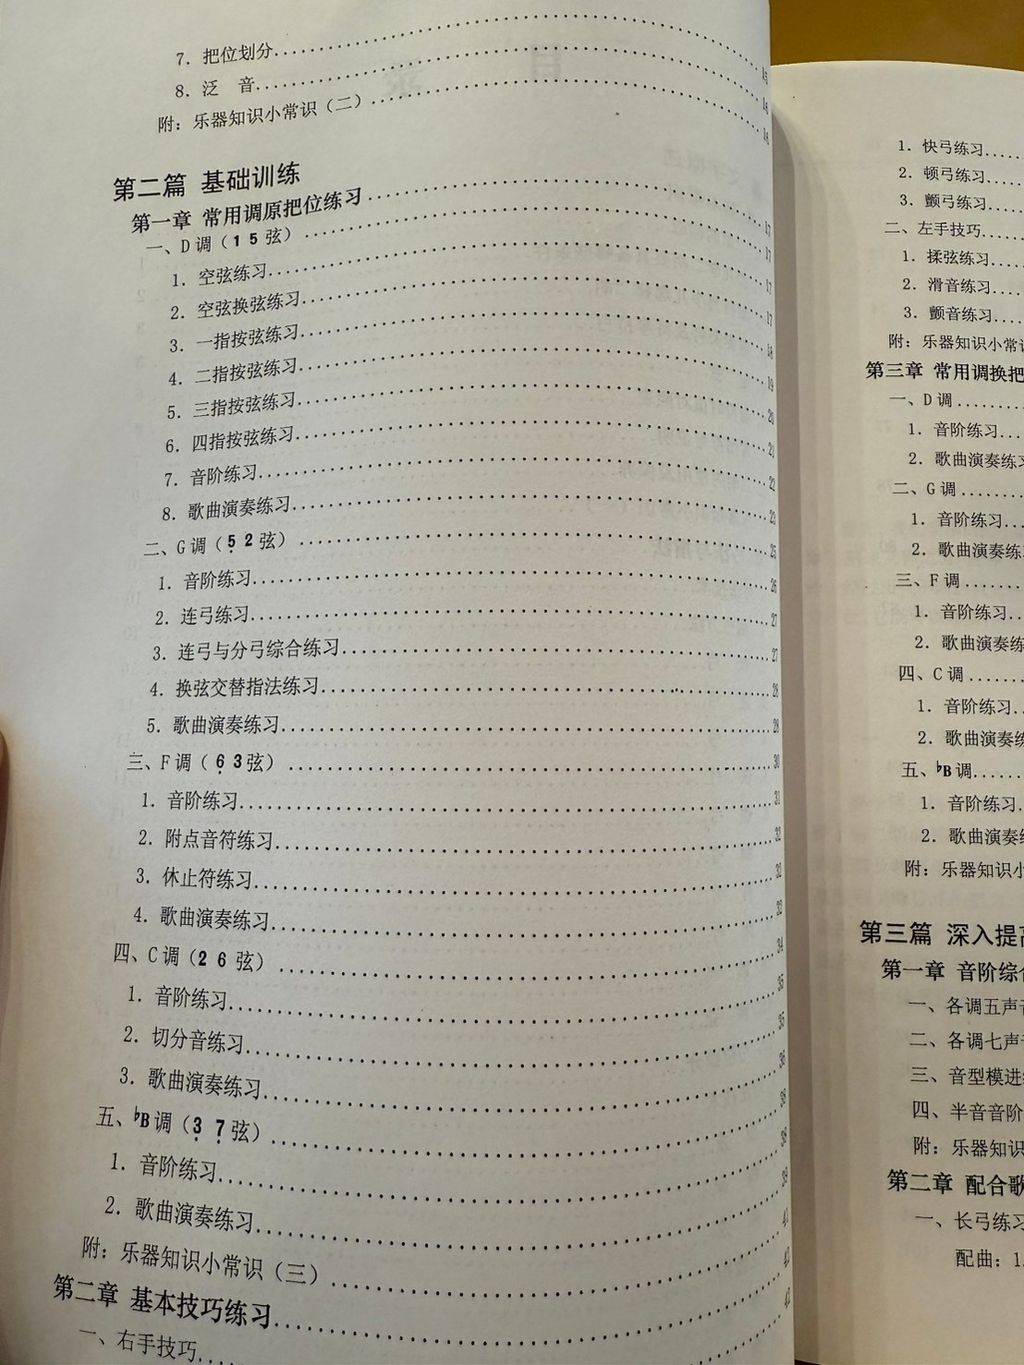 7. 把位划分
8. 泛 音
附：乐器知识小常识（二）
第二篇 基础训练
第一章 常用调原把位练习 17
一、D调（1 5弦） 17
1. 空弦练习 17
2. 空弦换弦练习 17
3. 一指按弦练习 18
4. 二指按弦练习 19
5. 三指按弦练习 20
6. 四指按弦练习 21
7. 音阶练习 22
8. 歌曲演奏练习 23
二、G调（5̣ 2弦） 25
1. 音阶练习 26
2. 连弓练习 27
3. 连弓与分弓综合练习 27
4. 换弦交替指法练习 28
5. 歌曲演奏练习 28
三、F调（6̣ 3弦） 30
1. 音阶练习 31
2. 附点音符练习 32
3. 休止符练习 32
4. 歌曲演奏练习 33
四、C调（2 6 弦） 34
1. 音阶练习 35
2. 切分音练习 35
3. 歌曲演奏练习 36
五、♭B调（3̣ 7̣弦） 38
1. 音阶练习 38
2. 歌曲演奏练习 39
附：乐器知识小常识（三） 41
第二章 基本技巧练习 42
一、右手技巧 42
1. 快弓练习
2. 顿弓练习
3. 颤弓练习
二、左手技巧
1. 揉弦练习
2. 滑音练习
3. 颤音练习
附：乐器知识小常
第三章 常用调换把
一、D调
1. 音阶练习
2. 歌曲演奏练
二、G调
1. 音阶练习
2. 歌曲演奏练
三、F调
1. 音阶练习
2. 歌曲演奏练
四、C调
1. 音阶练习
2. 歌曲演奏练
五、♭B调
1. 音阶练习
2. 歌曲演奏
附：乐器知识小
第三篇 深入提
第一章 音阶综
一、各调五声
二、各调七声
三、音型模进
四、半音音阶
附：乐器知识
第二章 配合歌
一、长弓练习
配曲：1.